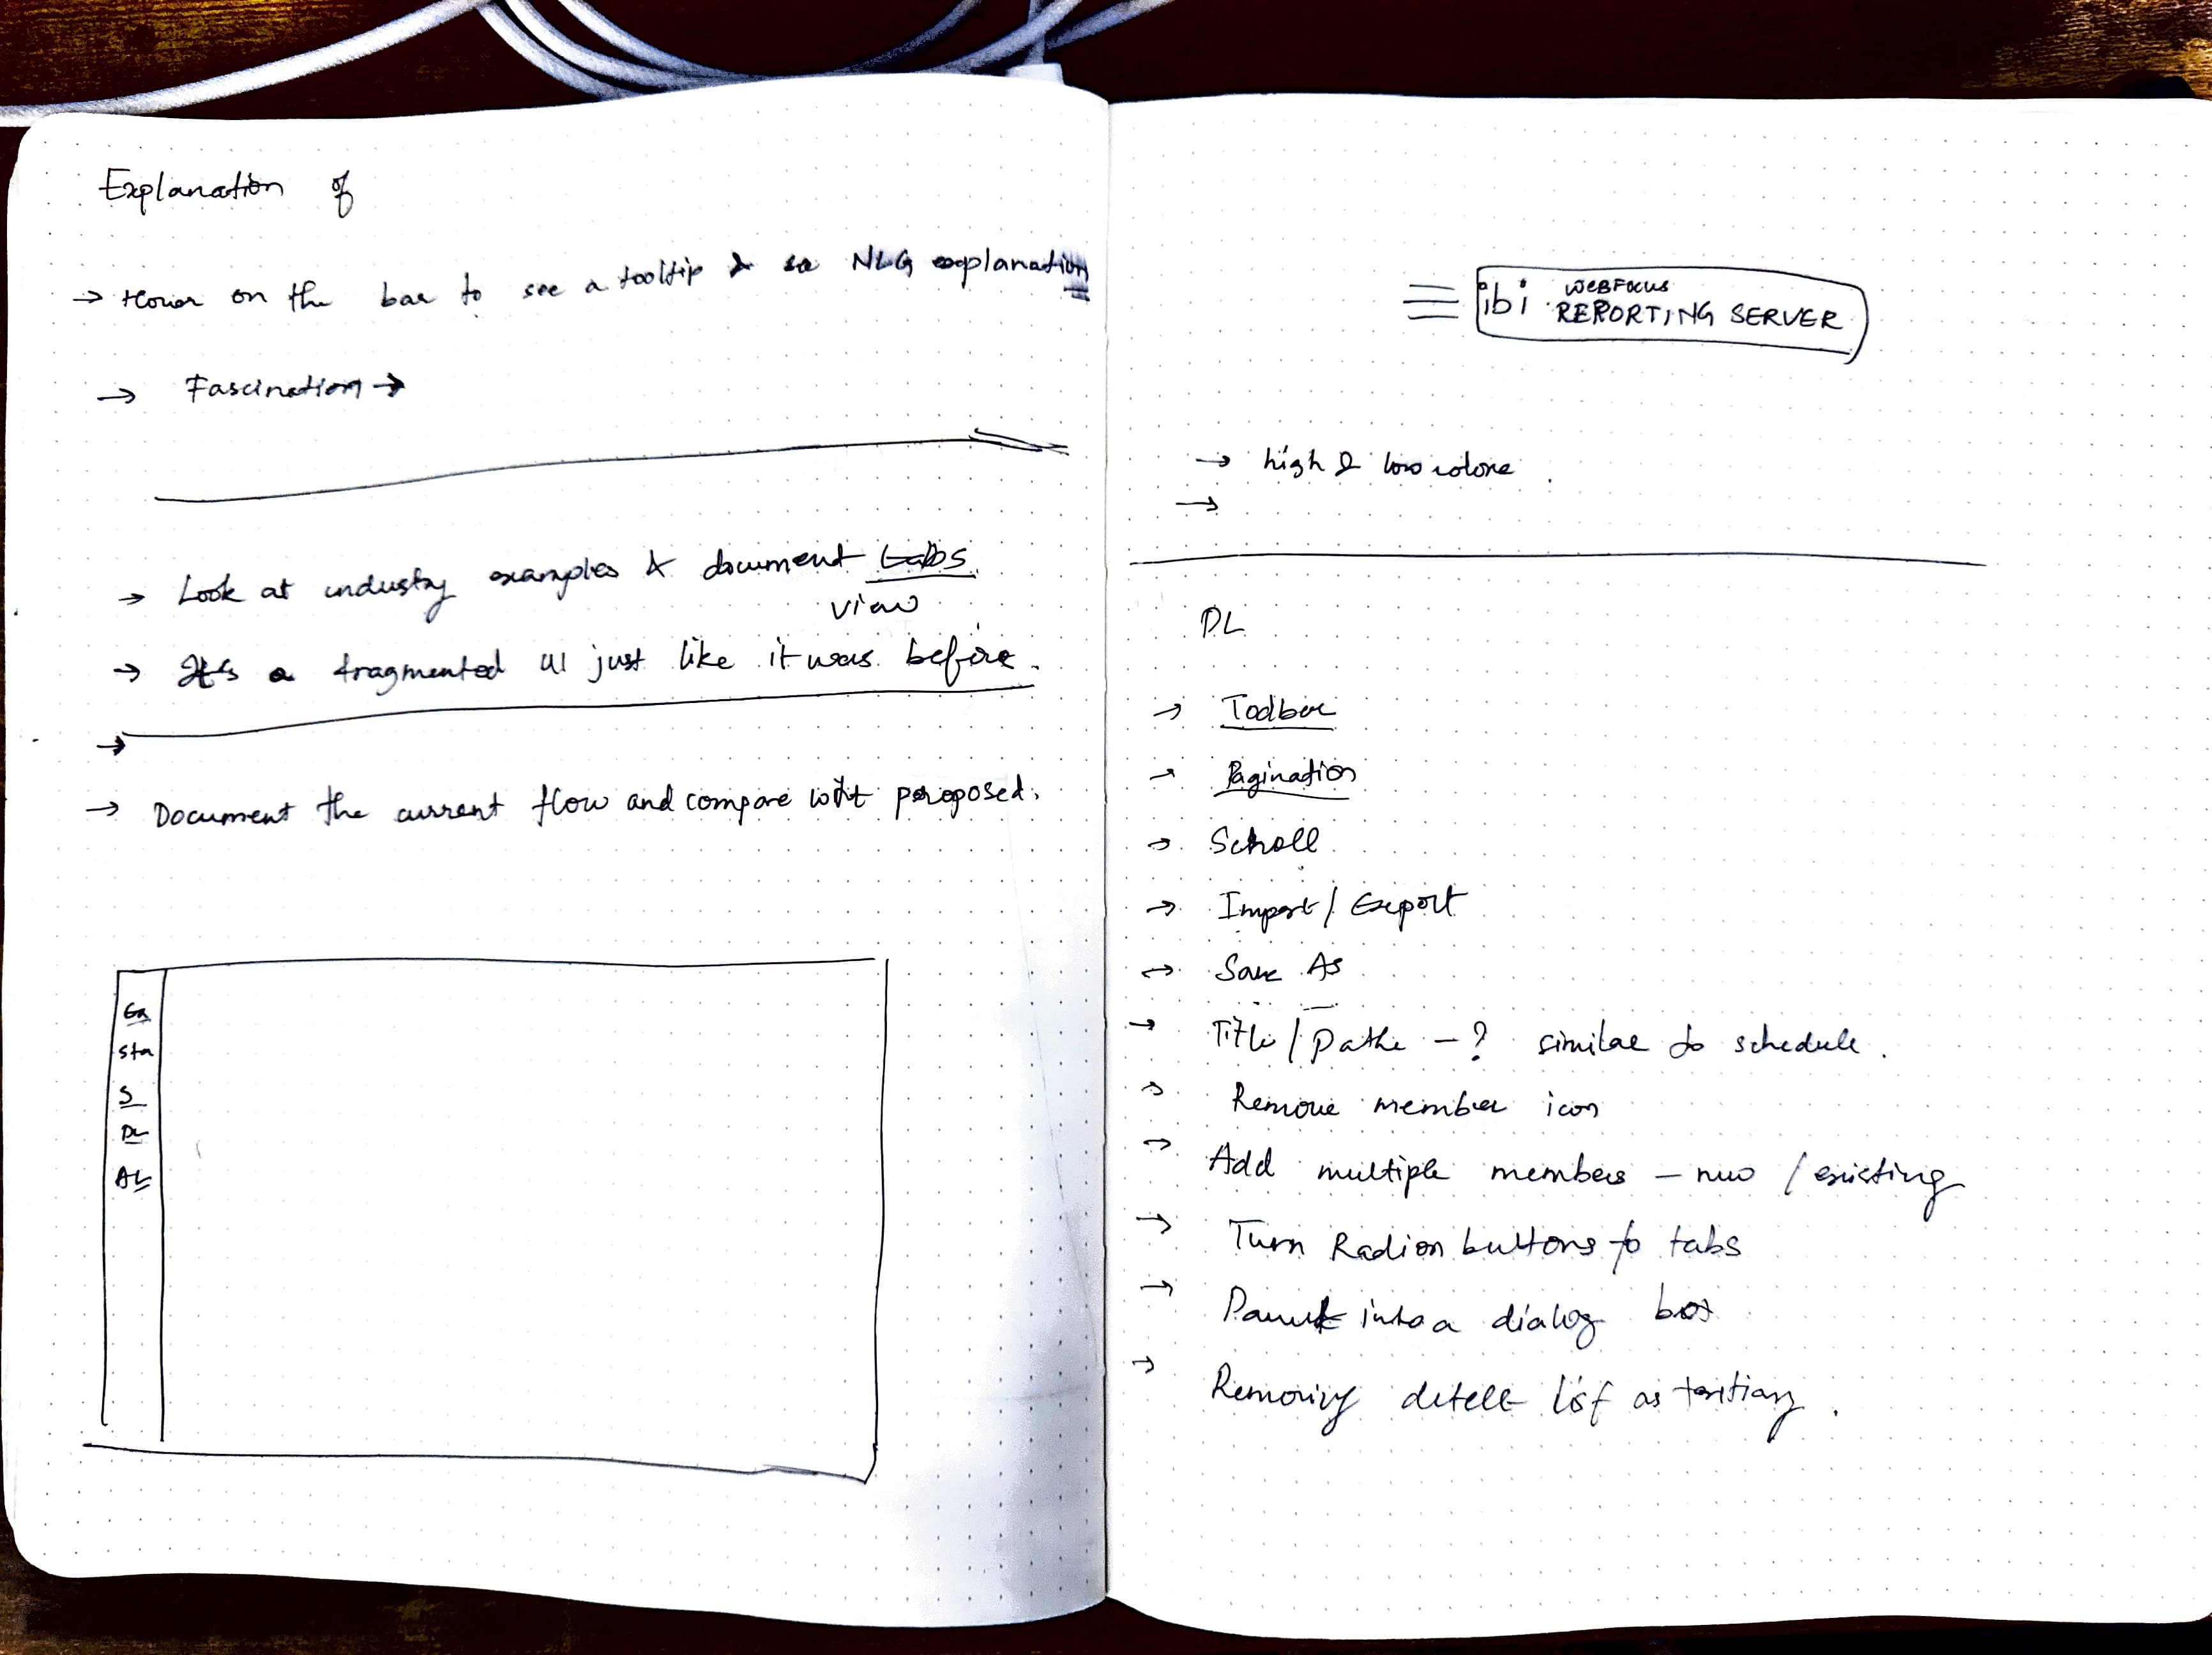 Explanation of
→ Hover on the bar to see a tooltip & NLG explanation
→ Fascination →
→ Look at industry examples & document tabs
view
→ It's a fragmented UI just like it was before.
→
→ Document the current flow and compare with proposed.
Sta
S
DL
AL
ibi WebFOCUS
REPORTING SERVER
→ high & low
→
DL
→ Toolbar
→ Pagination
→ Scroll
→ Import / Export
→ Save As
→ Title / Path - ? similar to schedule.
→ Remove member icon
→ Add multiple members - new / existing
→ Turn Radion buttons to tabs
→ into a dialog box
→ Removing list as